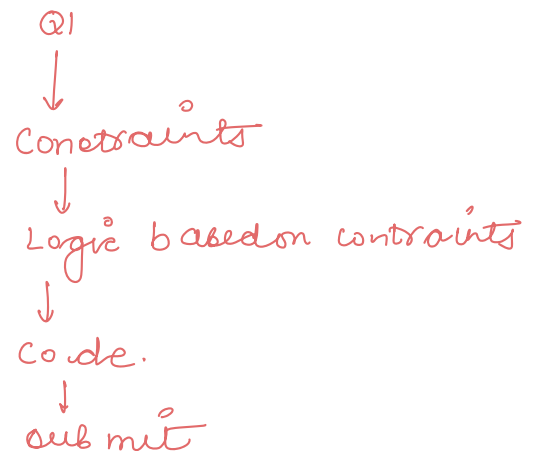 Q1
Constraints
Logic based on contraints
Code.
submit